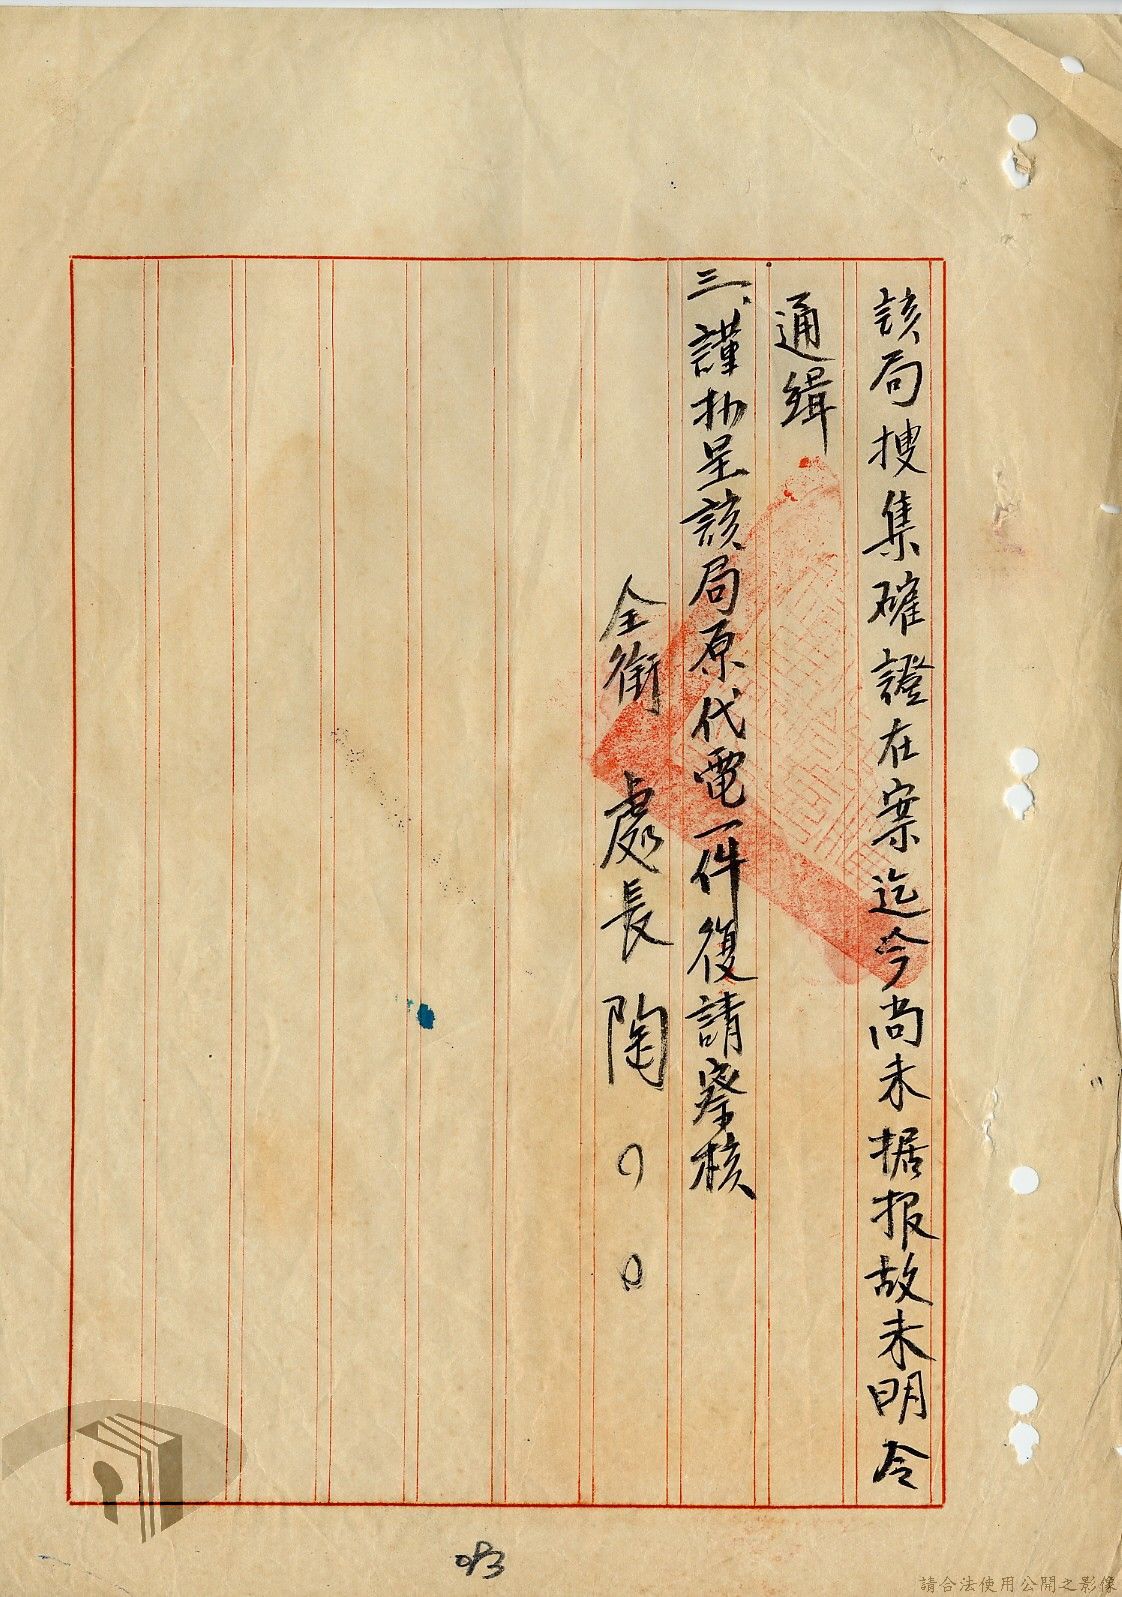 該局搜集確證在案迄今尚未据报故未明令
通缉
三、謹抄呈該局原代電一件復請察核
全銜 處長 陶○○
093
請合法使用公開之影像